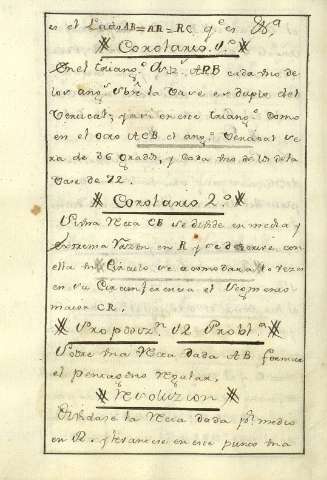 es el Lado AB=AR=RC q.e es
Corolario 1.º
En el triang.º ARB cada uno de
los ang.s sobre la Vase es duplo del
Vertical; y assi en este triang.º como
en el otro ACB el ang.º Vertical se
ra de 36 grados, y cada uno de los de la
Vase de 72.
Corolario 2.º
Si una recta CB se divide en media y
extrema razon en R y se descrive con
ella un Circulo se acomodara veces
en su Circunferencia el segmento
maior CR.
Propoziz.n 12 Probl.a
Sobre una recta dada AB formar
el pentagono regular.
Resoluzion
Dividase la recta dada p.r medio
en R. y levantese en este punto una